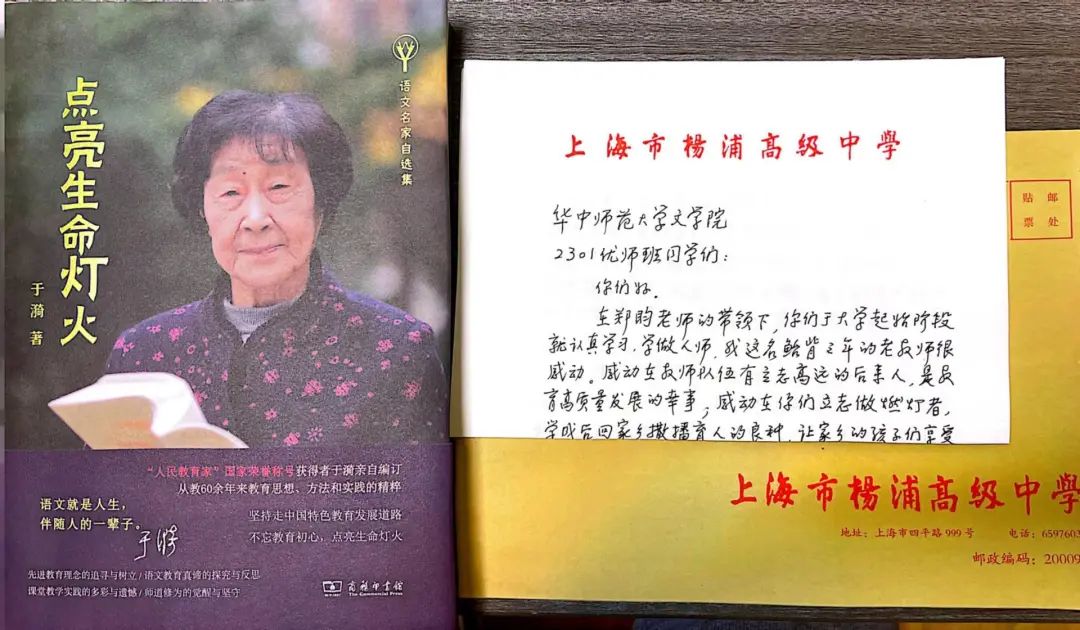 点亮生命灯火
于漪 著
语文名家自选集
“人民教育家”国家荣誉称号获得者于漪亲自编订
从教60余年来教育思想、方法和实践的精粹
语文就是人生，
伴随人的一辈子。
于漪
坚持走中国特色教育发展道路
不忘教育初心，点亮生命灯火
先进教育理念的追寻与树立/语文教育真谛的探究与反思
课堂教学实践的多彩与遗憾/师道修为的觉醒与坚守
商务印书馆
The Commercial Press
上海市楊浦高級中學
华中师范大学文学院
2301优师班同学们：
你们好。
在郑昀老师的带领下，你们于大学起始阶段
就认真学习，学做人师，我这名鲐背之年的老教师很
感动。感动在教师队伍有立志高远的后来人，是教
育高质量发展的幸事；感动在你们立志做燃灯者，
学成后回家乡撒播育人的良种，让家乡的孩子们享受
贴邮
票处
上海市楊浦高級中學
地址：上海市四平路999号 电话：6597603
邮政编码：20009